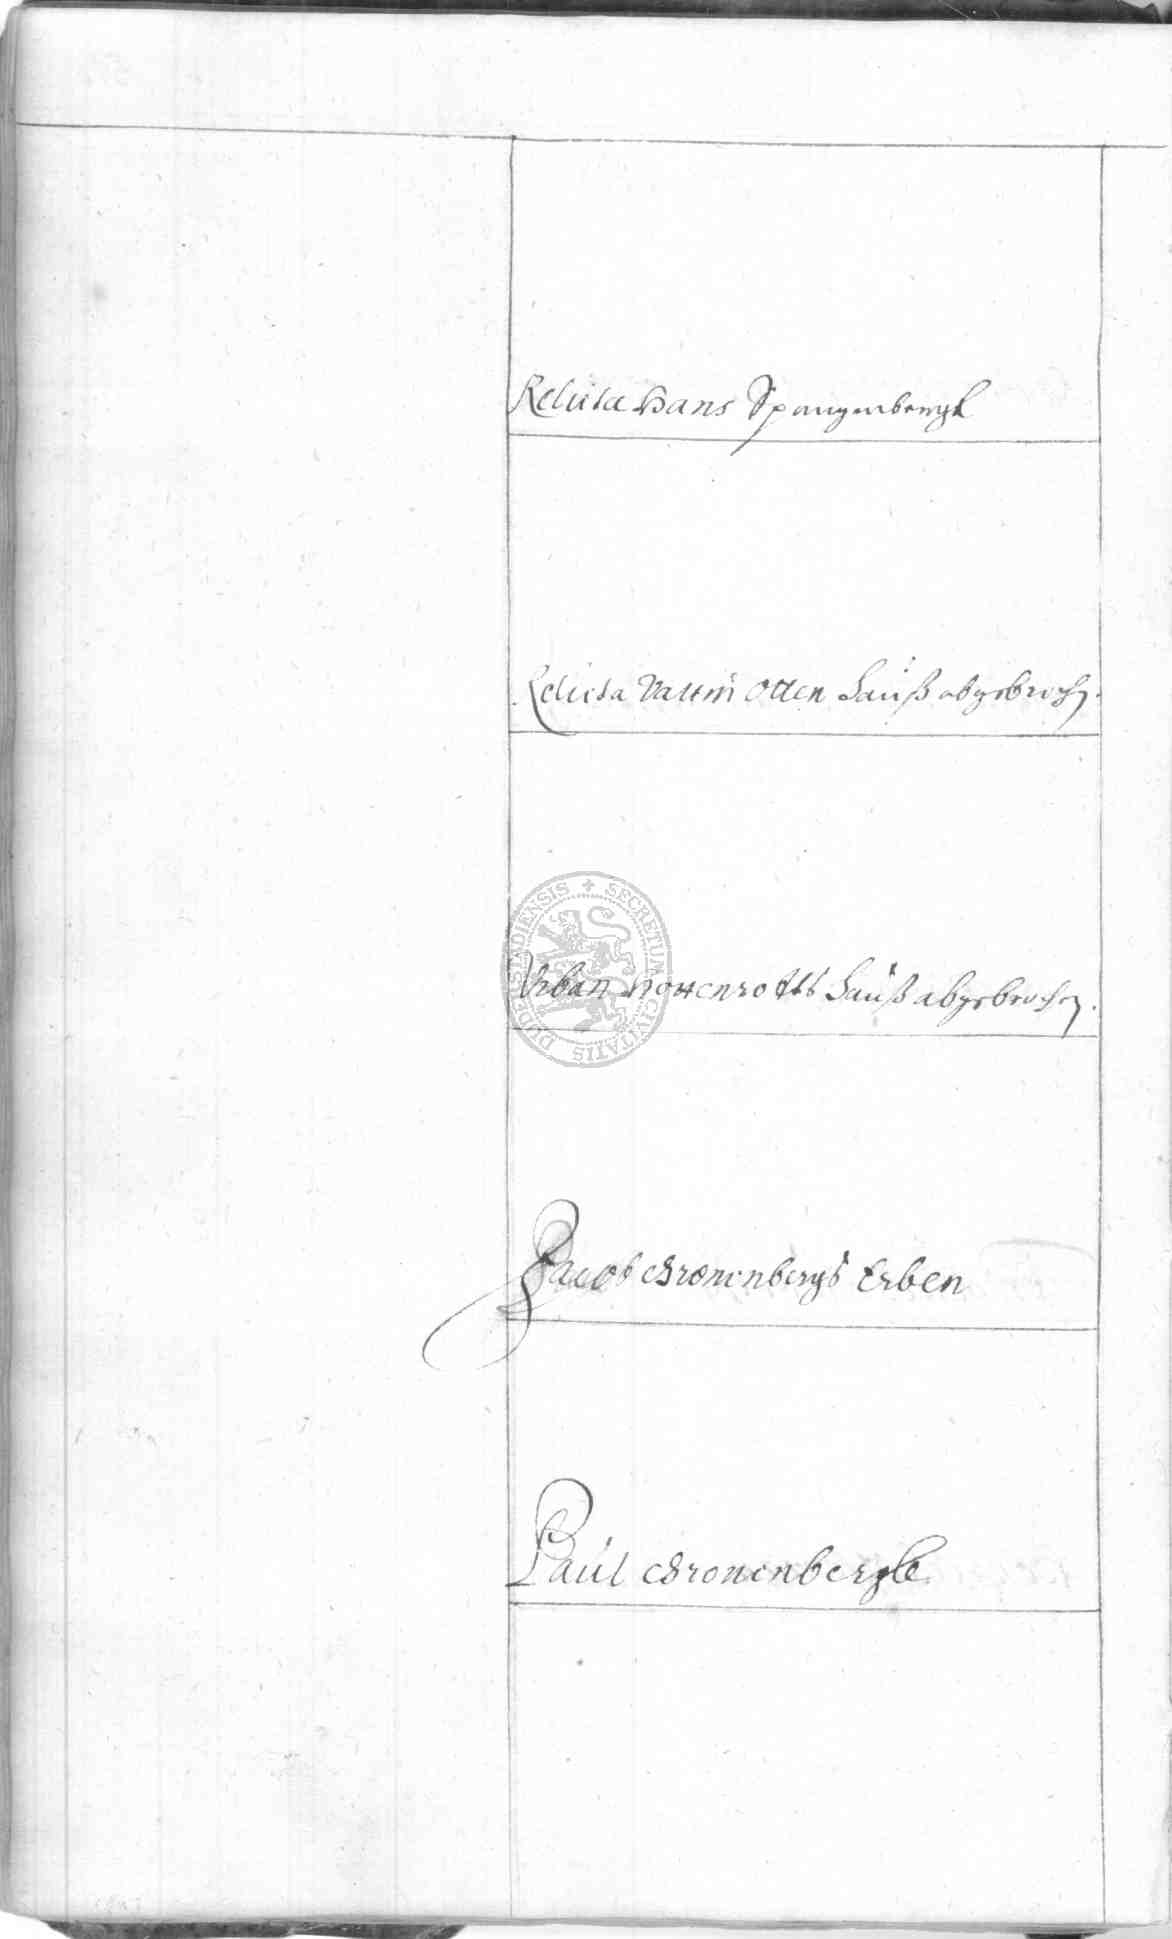 Relicta Hans Spangenbergk
Relicta Valtin Otten Hauß abgebrochen.
SECRETUM CIVITATIS DUDERSTADIENSIS
Urban Nottenrotts Hauß abgebrochen.
Jacob Cronenbergs Erben
Paul Cronenbergk